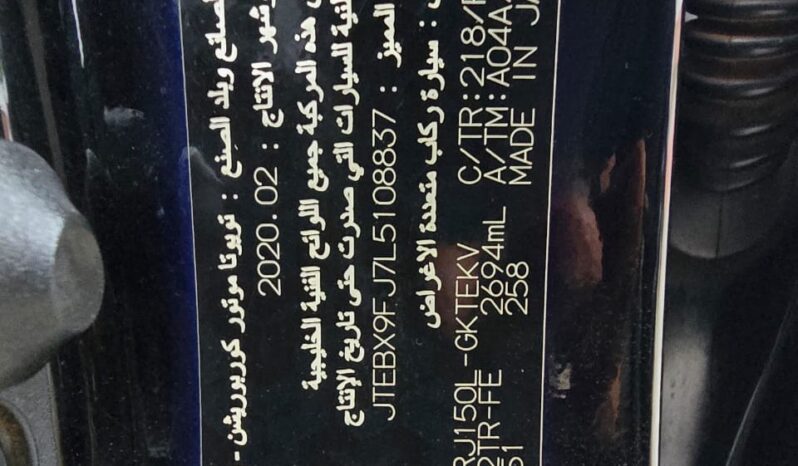 الصانع وبلد الصنع : تويوتا موتور كوربوريشن -
وشهر الانتاج : 2020.02
هذه المركبة جميع اللوائح الفنية الخليجية
الفنية للسيارات التي صدرت حتى تاريخ الإنتاج
المميز : JTEBX9FJ7L5108837
: سيارة ركاب متعددة الاغراض
RJ150L-GKTEKV C/TR:218/
2TR-FE 2694mL A/TM:A04A
258 MADE IN JA